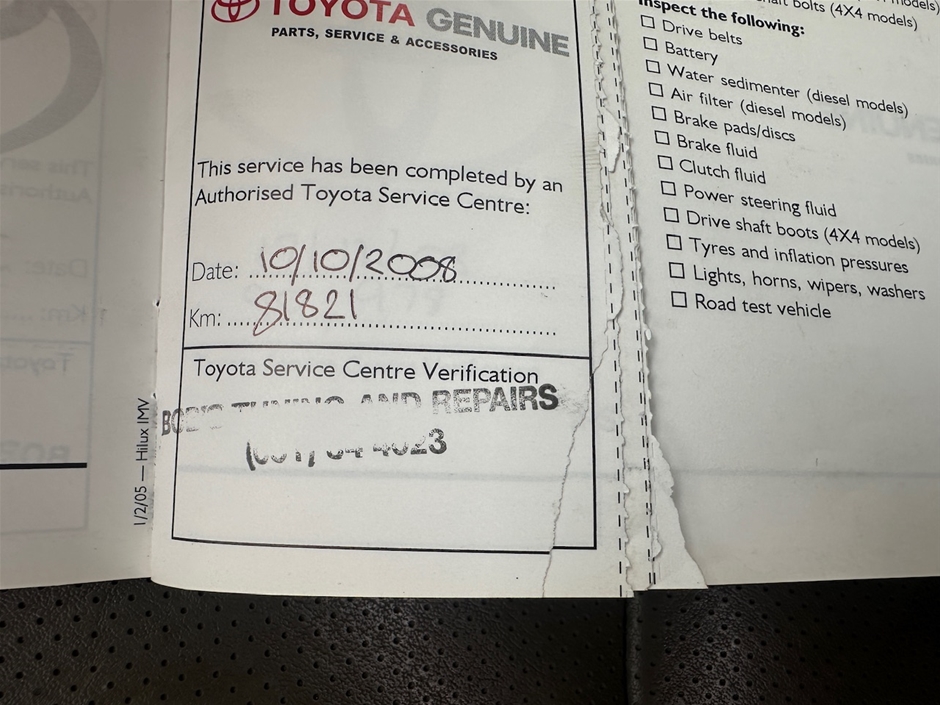 TOYOTA GENUINE
PARTS, SERVICE & ACCESSORIES
This service has been completed by an
Authorised Toyota Service Centre:
Date: 10/10/2008
Km: 81821
Toyota Service Centre Verification
BOB'S TUNING AND REPAIRS
4023
1/2/05 — Hilux IMV
bolts (4X4 models)
Inspect the following:
Drive belts
Battery
Water sedimenter (diesel models)
Air filter (diesel models)
Brake pads/discs
Brake fluid
Clutch fluid
Power steering fluid
Drive shaft boots (4X4 models)
Tyres and inflation pressures
Lights, horns, wipers, washers
Road test vehicle